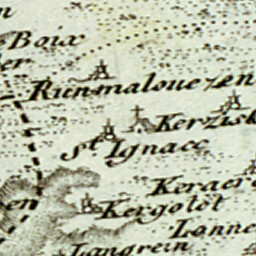 Boix
er
Runmalouezen
Kerzisk
St. Ignace
Keraer
en
Kergolot
Lanne
Langrein